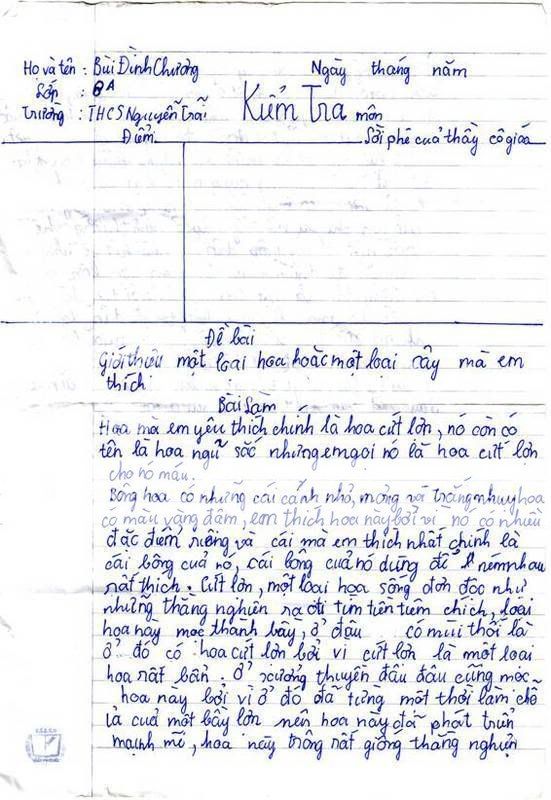 Họ và tên : Bùi Đình Chương
Ngày tháng năm
Lớp : 8A
Trường : THCS Nguyễn Trãi
Kiểm Tra môn
Điểm
Lời phê của thầy cô giáo
Đề bài
Giới thiệu một loại hoa hoặc một loại cây mà em
thích
Bài Làm
Hoa mà em yêu thích chính là hoa cứt lợn, nó còn có
tên là hoa ngũ sắc nhưng em gọi nó là hoa cứt lợn
cho nó máu.
Bông hoa có những cái cánh nhỏ, mỏng và trắng nhuỵ hoa
có màu vàng đậm, em thích hoa này bởi vì nó có nhiều
đặc điểm riêng và cái mà em thích nhất chính là
cái bông của nó, cái bông của nó dùng để ném nhau
rất thích. Cứt lợn, một loại hoa sống đơn độc như
những thằng nghiên ra đi tìm tiền tiêm chích, loại
hoa này mọc thành bầy, ở đâu có mùi thối là
ở đó có hoa cứt lợn bởi vì cứt lợn là một loại
hoa rất bẩn. Ở xưởng thuyền đâu đâu cũng mọc
hoa này bởi vì ở đó đã từng một thời làm chỗ
ỉa của một bầy lợn nên hoa này đã phát triển
mạnh mẽ, hoa này trông rất giống thằng nghiện